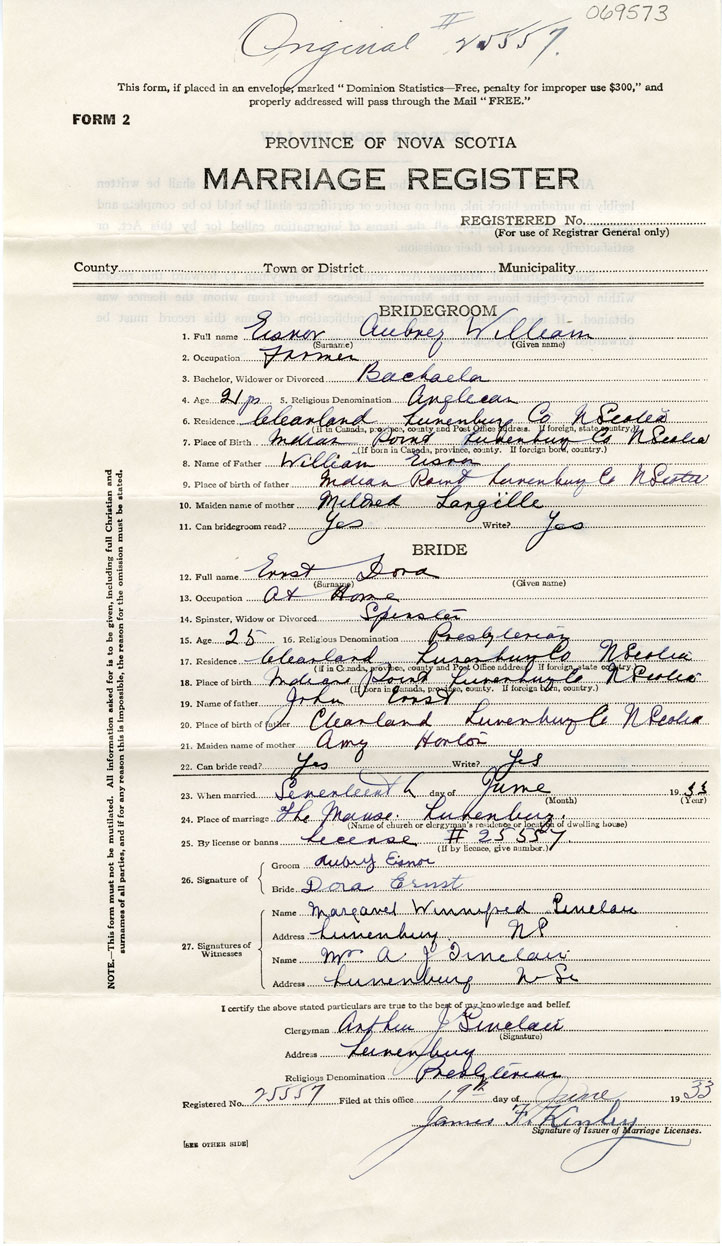 069573
Original # 25557.
This form, if placed in an envelope, marked "Dominion Statistics—Free, penalty for improper use $300," and
properly addressed will pass through the Mail "FREE."
FORM 2
PROVINCE OF NOVA SCOTIA
MARRIAGE REGISTER
REGISTERED No.
(For use of Registrar General only)
County Town or District Municipality
BRIDEGROOM
1. Full name Eisnor Aubrey William
(Surname) (Given name)
2. Occupation Farmer
3. Bachelor, Widower or Divorced Bachelor
4. Age 21 yrs 5. Religious Denomination Anglican
6. Residence Clearland Lunenburg Co N Scotia
(If in Canada, province, county and Post Office address. If foreign, state country.)
7. Place of Birth Indian Point Lunenburg Co N Scotia
(If born in Canada, province, county. If foreign born, country.)
8. Name of Father William Eisnor
9. Place of birth of father Indian Point Lunenburg Co N Scotia
10. Maiden name of mother Mildred Langille
11. Can bridegroom read? Yes Write? Yes
BRIDE
12. Full name Ernst Dora
(Surname) (Given name)
13. Occupation At Home
14. Spinster, Widow or Divorced Spinster
15. Age 25 16. Religious Denomination Presbyterian
17. Residence Clearland Lunenburg Co N Scotia
(If in Canada, province, county and Post Office address. If foreign, state country.)
18. Place of birth Indian Point Lunenburg Co N Scotia
(If born in Canada, province, county. If foreign born, country.)
19. Name of father John Ernst
20. Place of birth of father Clearland Lunenburg Co N Scotia
21. Maiden name of mother Amy
22. Can bride read? Yes Write? Yes
23. When married Seventeenth day of June 1933
(Month) (Year)
24. Place of marriage The Manse. Lunenburg.
(Name of church or clergyman's residence or location of dwelling house)
25. By license or banns License # 25557.
(If by licence, give number.)
26. Signature of
Groom Aubry Eisnor
Bride Dora Ernst
27. Signatures of Witnesses
Name Margaret Winnifred Sinclair
Address Lunenburg NS
Name Mrs A J Sinclair
Address Lunenburg N Sc
I certify the above stated particulars are true to the best of my knowledge and belief.
Clergyman Arthur J Sinclair
(Signature)
Address Lunenburg
Religious Denomination Presbyterian
Registered No. 25557 Filed at this office 19th day of June 1933
James F. Kinley
Signature of Issuer of Marriage Licenses.
[SEE OTHER SIDE]
NOTE.—This form must not be mutilated. All information asked for is to be given, including full Christian and
surnames of all parties, and if for any reason this is impossible, the reason for the omission must be stated.